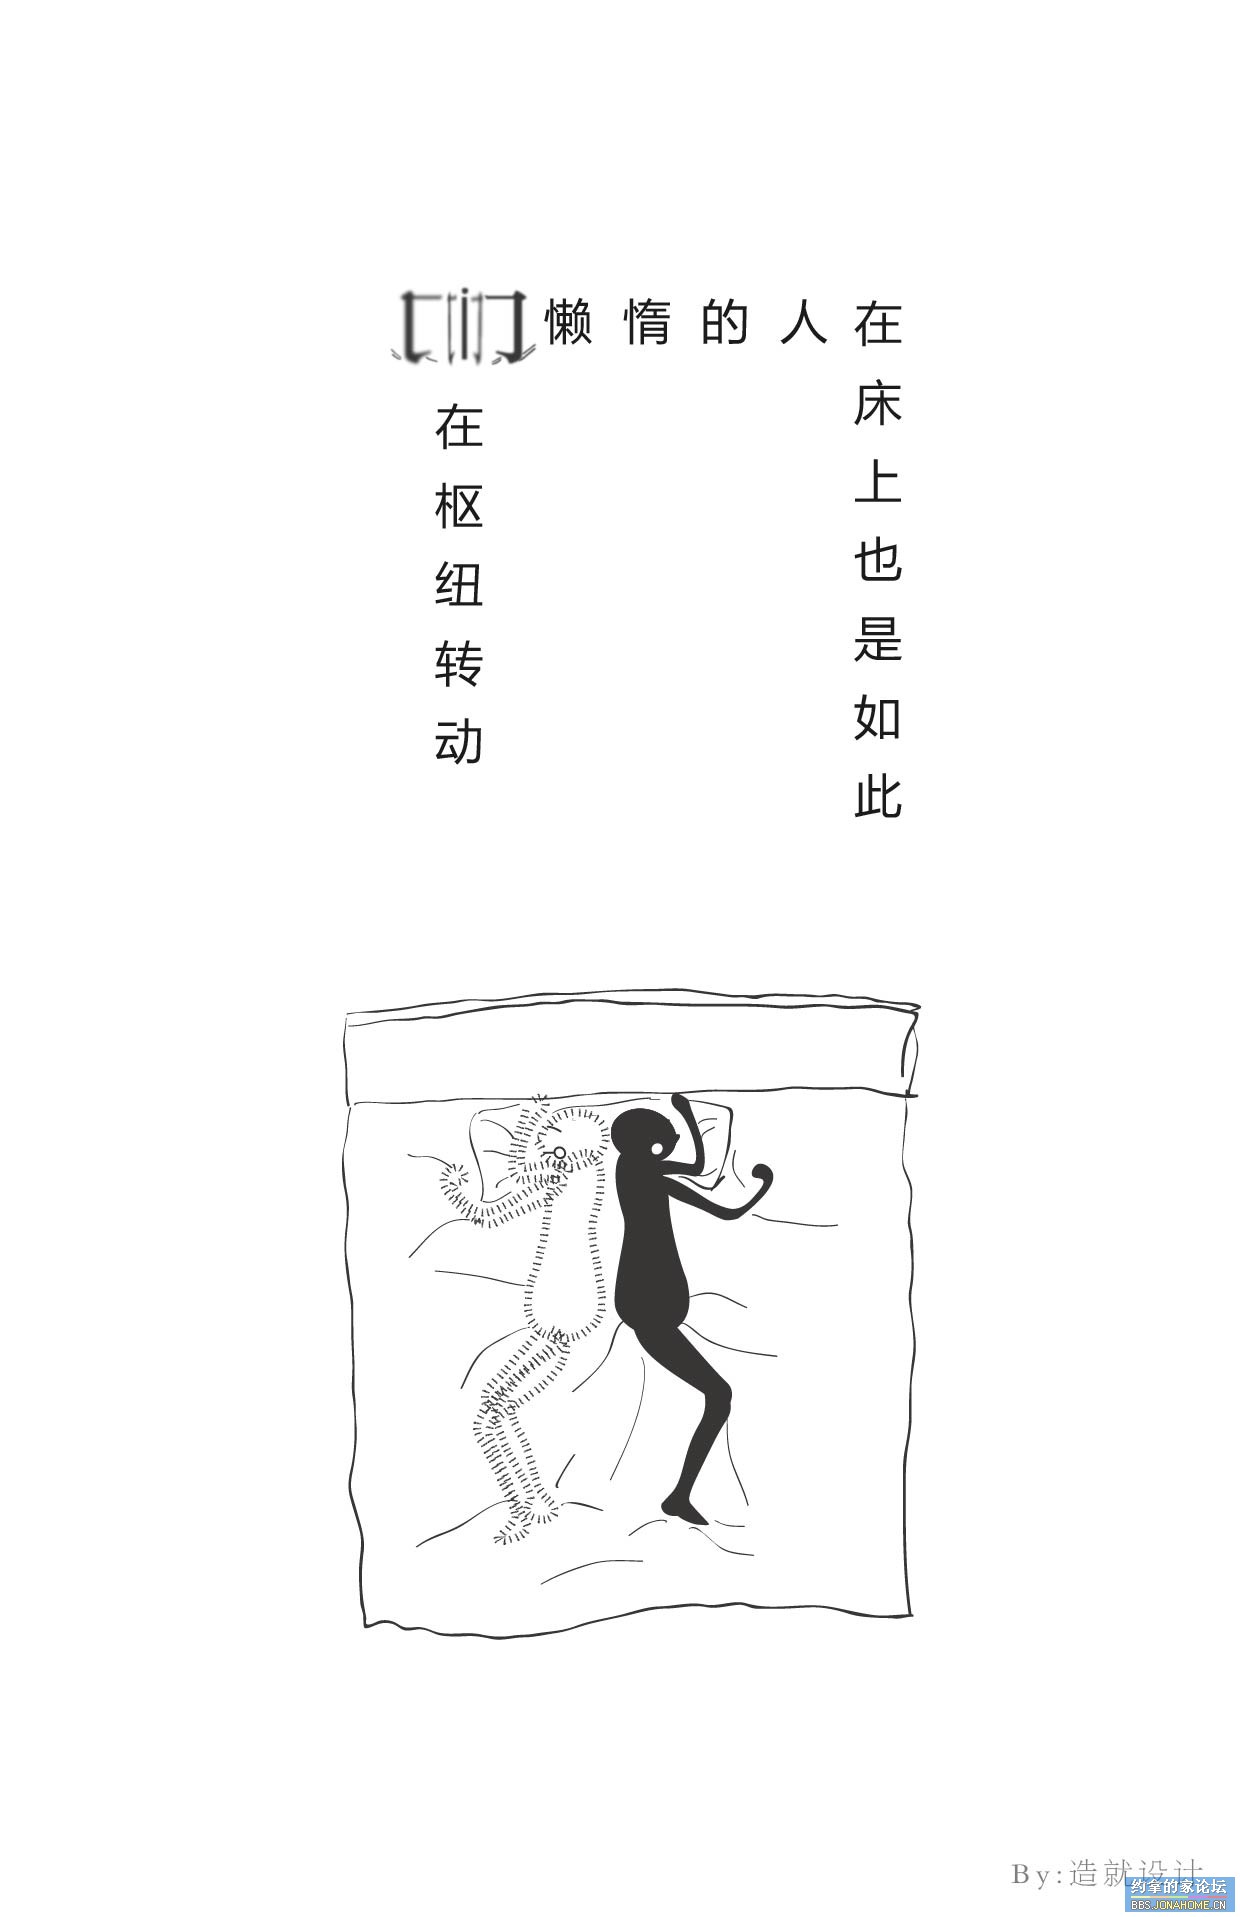 门在枢纽转动
懒惰的人
在床上也是如此
By:造就设计
约拿的家论坛
BBS.JONAHOME.CN